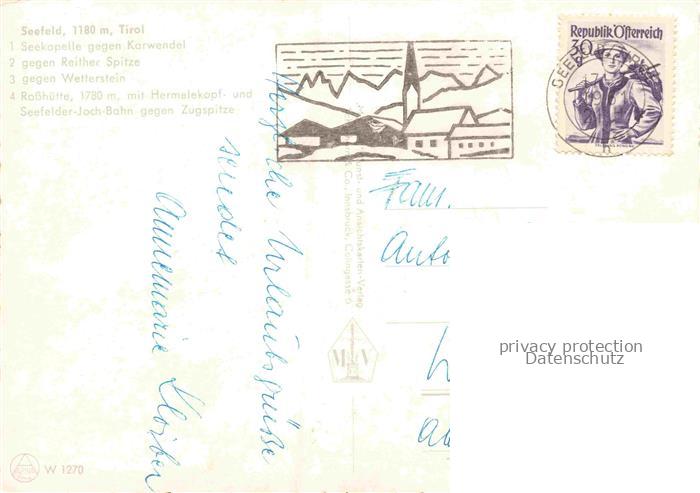 Seefeld, 1180 m, Tirol
1 Seekapelle gegen Karwendel
2 gegen Reither Spitze
3 gegen Wetterstein
4 Roßhütte, 1780 m, mit Hermelekopf- und
Seefelder-Joch-Bahn gegen Zugspitze
Republik Österreich
30
SEEF
Herzliche Urlaubsgrüße
sendet
Annemarie Kloiber
Kunst- und Ansichtskarten-Verlag
& Co., Innsbruck, Collingasse 6
Fam.
Anto
M V
privacy protection
Datenschutz
W 1270